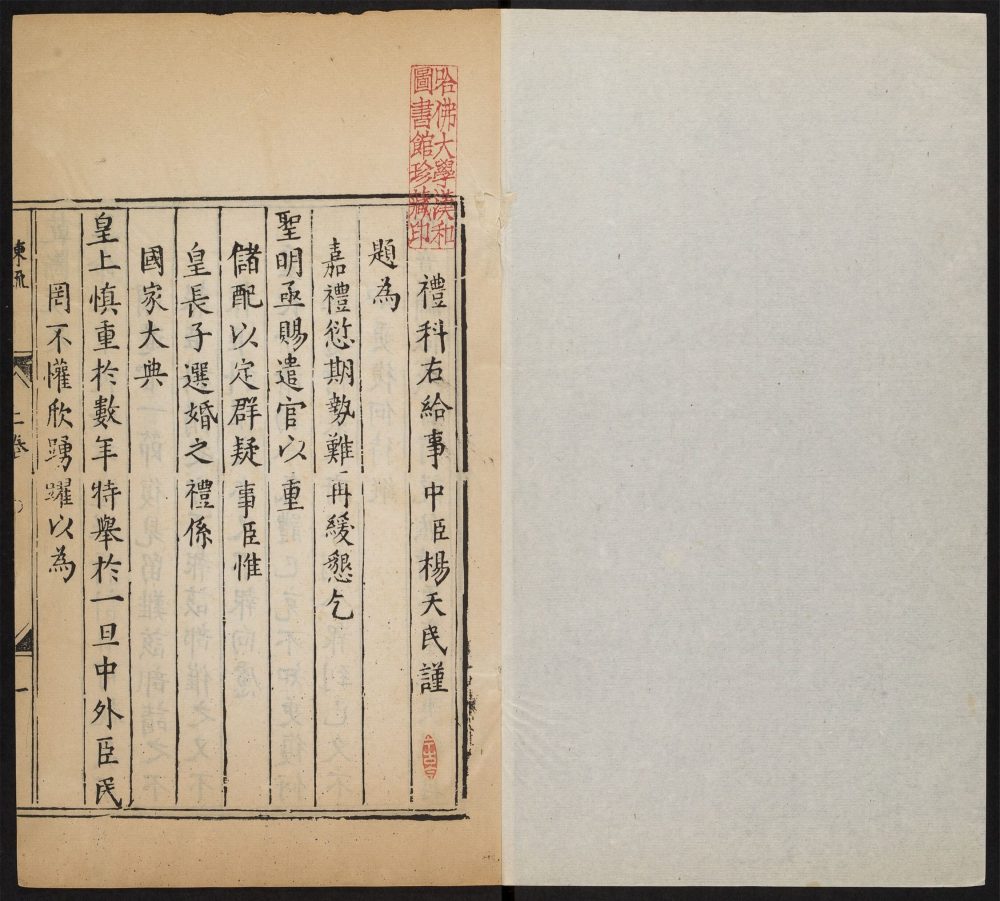 哈佛大學漢和
圖書館珍藏印
禮科右給事中臣楊天民謹
題為
嘉禮愆期勢難再緩懇乞
聖明亟賜遣官以重
儲配以定群疑事臣惟
皇長子選婚之禮係
國家大典
皇上慎重於數年特舉於一旦中外臣民
罔不懽欣踴躍以為
上卷
一